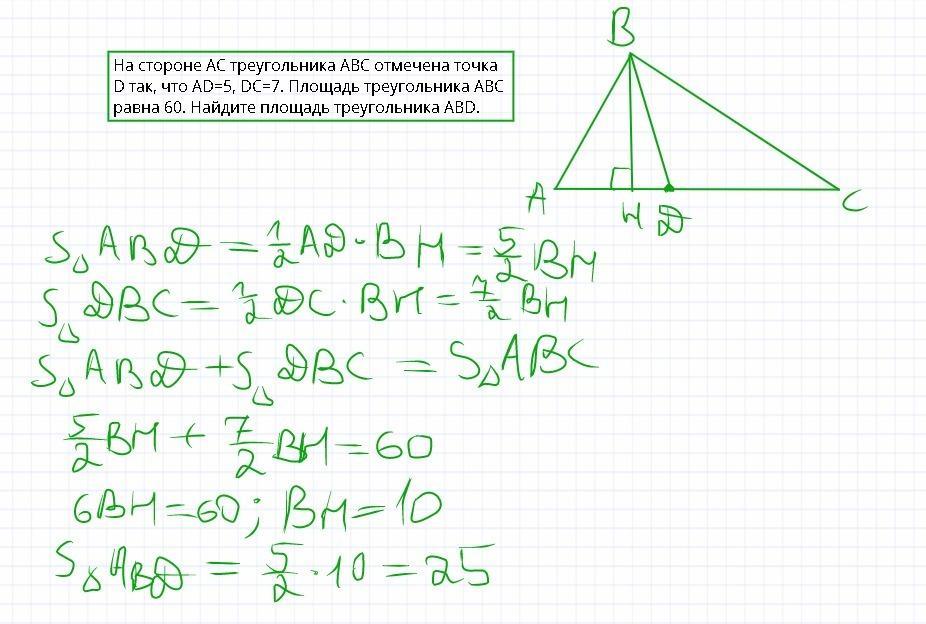 На стороне АС треугольника АВС отмечена точка
D так, что AD=5, DC=7. Площадь треугольника АВС
равна 60. Найдите площадь треугольника ABD.
B
A
H
D
C
S△ABD = 1/2 AD · BH = 5/2 BH
S△DBC = 1/2 DC · BH = 7/2 BH
S△ABD + S△DBC = S△ABC
5/2 BH + 7/2 BH = 60
6BH = 60; BH = 10
S△ABD = 5/2 · 10 = 25